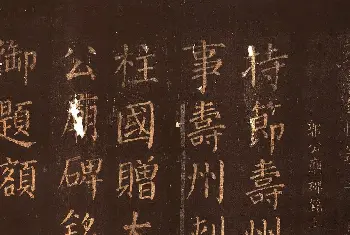 郭公廟碑銘
持節壽州
事壽州刺
柱國贈太
公廟碑銘
御題額